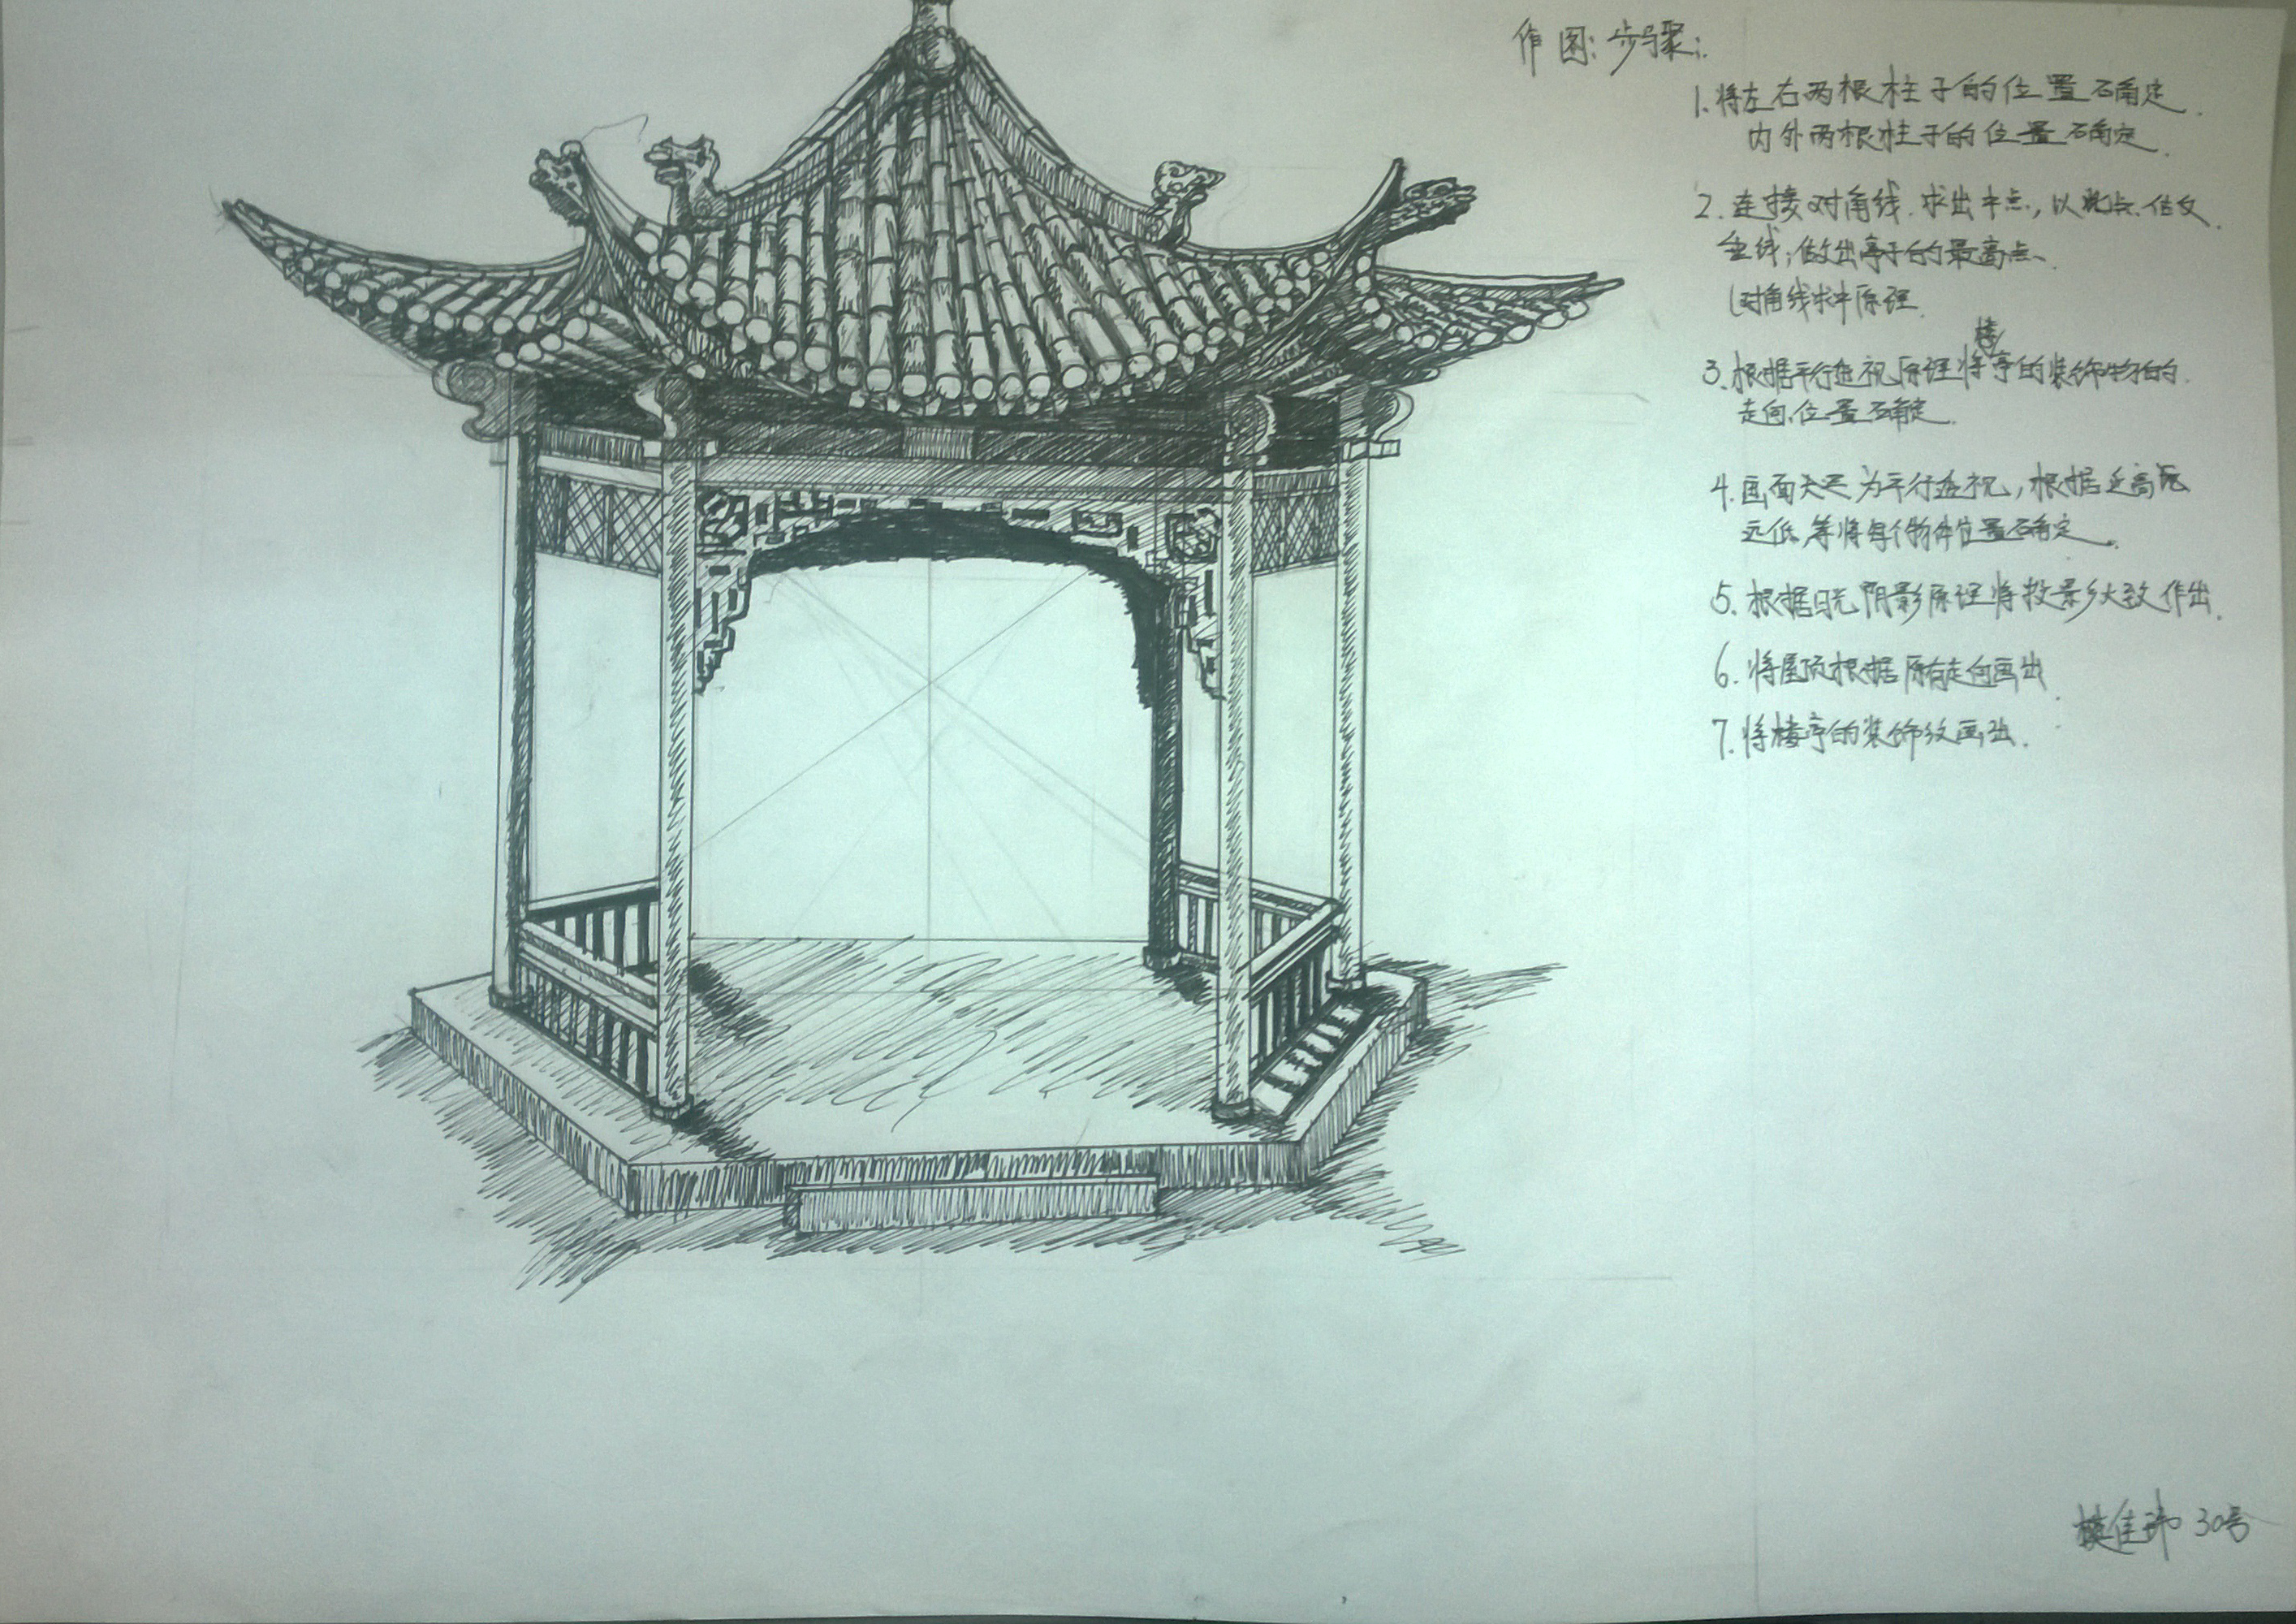 作图:步骤:
1.将左右两根柱子的位置确定.
内外两根柱子的位置确定.
2.连接对角线.求出中点,以此点
垂线,做出亭子的最高点.
(对角线求中原理.
楼
3.根据平行透视原理将亭的装饰物的.
走向,位置确定.
4.画面大 为平行透视,根据近高
远低,等将每个物件位置确定.
5.根据日光阴影原理将投影大致作出.
6.将屋顶根据原有走向画出.
7.将楼亭的装饰纹画出.
佳玮 30号